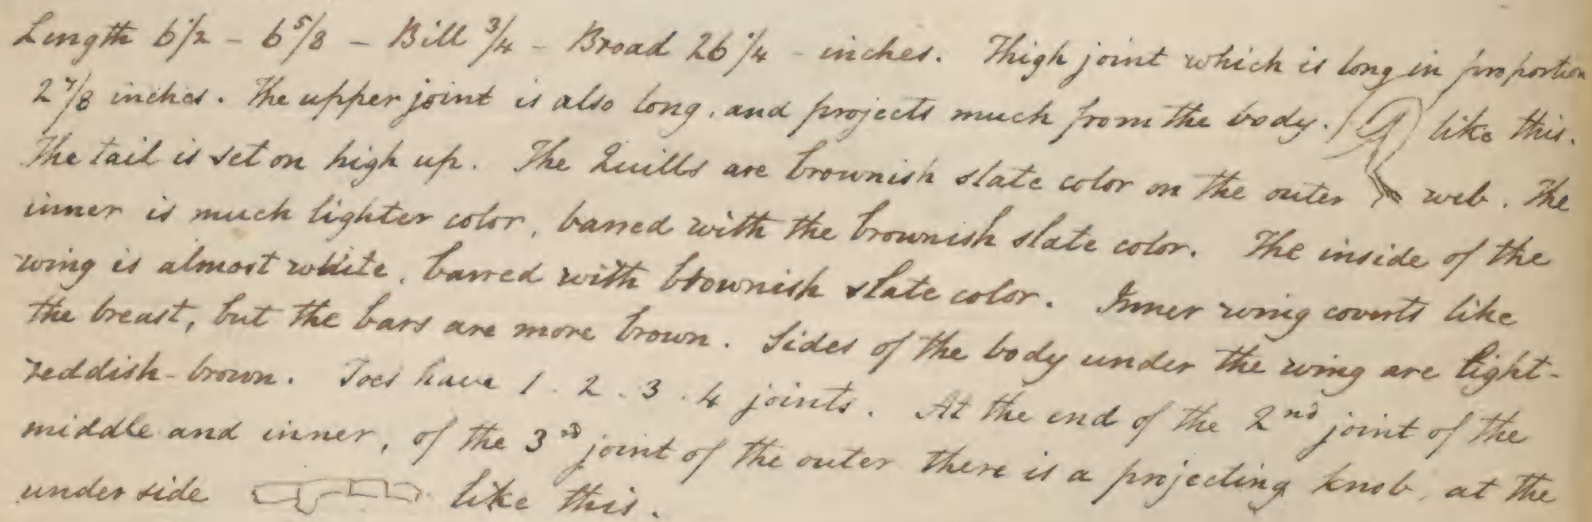 Length 6 1/2 - 6 5/8 - Bill 3/4 - Broad 26 1/4 - inches. Thigh joint which is long in proportion
2 7/8 inches. The upper joint is also long, and projects much from the body. like this.
The tail is set on high up. The Quills are brownish slate color on the outer web. The
inner is much lighter color, barred with the brownish slate color. The inside of the
wing is almost white, barred with brownish slate color. Inner wing coverts like
the breast, but the bars are more brown. Sides of the body under the wing are light-
reddish-brown. Toes have 1. 2. 3. 4 joints. At the end of the 2nd joint of the
middle and inner, of the 3rd joint of the outer there is a projecting knob, at the
under side like this.